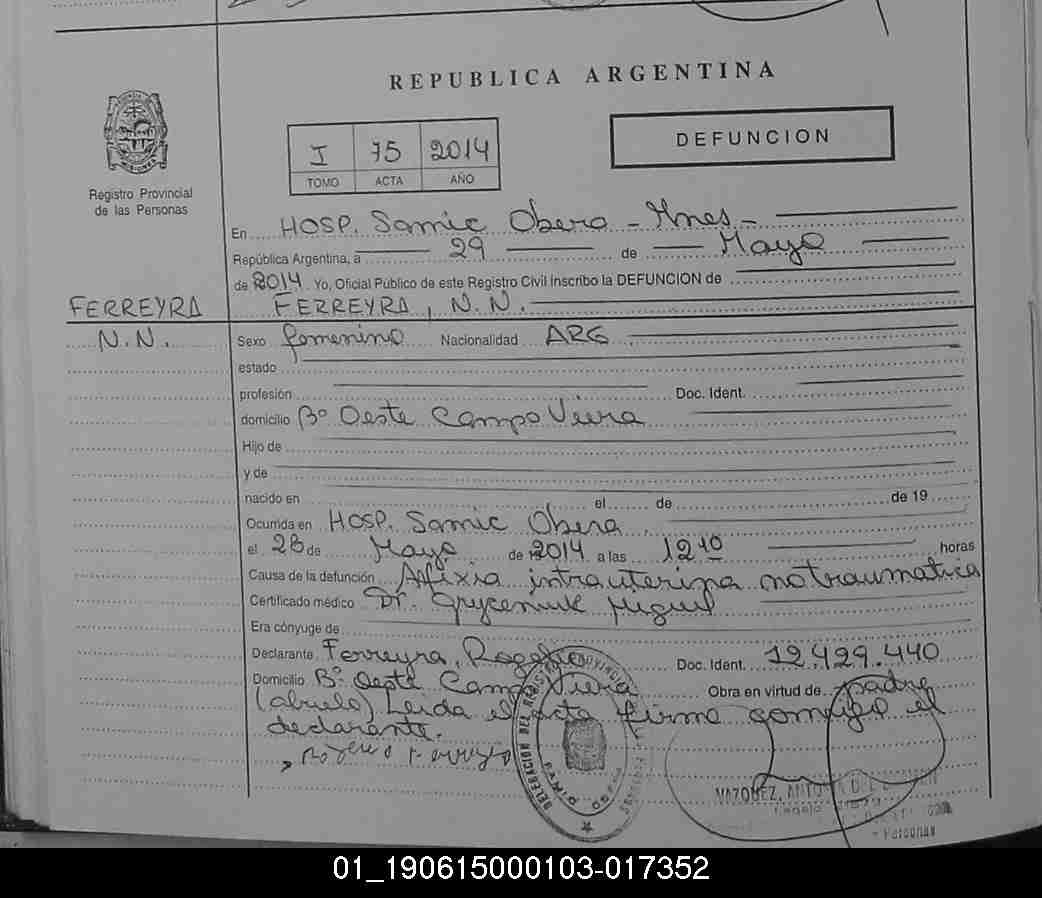 REPUBLICA ARGENTINA
DEFUNCION
I 75 2014
TOMO ACTA AÑO
Registro Provincial
de las Personas
En HOSP. Samic Obera - Mnes -
República Argentina, a 29 de Mayo
de 2014 Yo, Oficial Público de este Registro Civil Inscribo la DEFUNCION de
FERREYRA FERREYRA, N.N.
N.N. Sexo femenino Nacionalidad ARG
estado
profesión Doc. Ident.
domicilio Bº Oeste Campo Viera
Hijo de
y de
nacido en el de de 19
Ocurrida en HOSP. Samic Obera
el 28 de Mayo de 2014 a las 12 10 horas
Causa de la defunción Asfixia intrauterina no traumatica
Certificado médico Dr. Miguel
Era cónyuge de
Declarante Ferreyra, Rogelio Doc. Ident. 12.429.440
Domicilio Bº Oeste Campo Viera Obra en virtud de padre
(abuelo) Leida el acta firma conmigo el
declarante.
DELEGACION DEL REGISTRO PROVINCIAL
VAZQUEZ, ANTONIA DEL
Personas
01_190615000103-017352